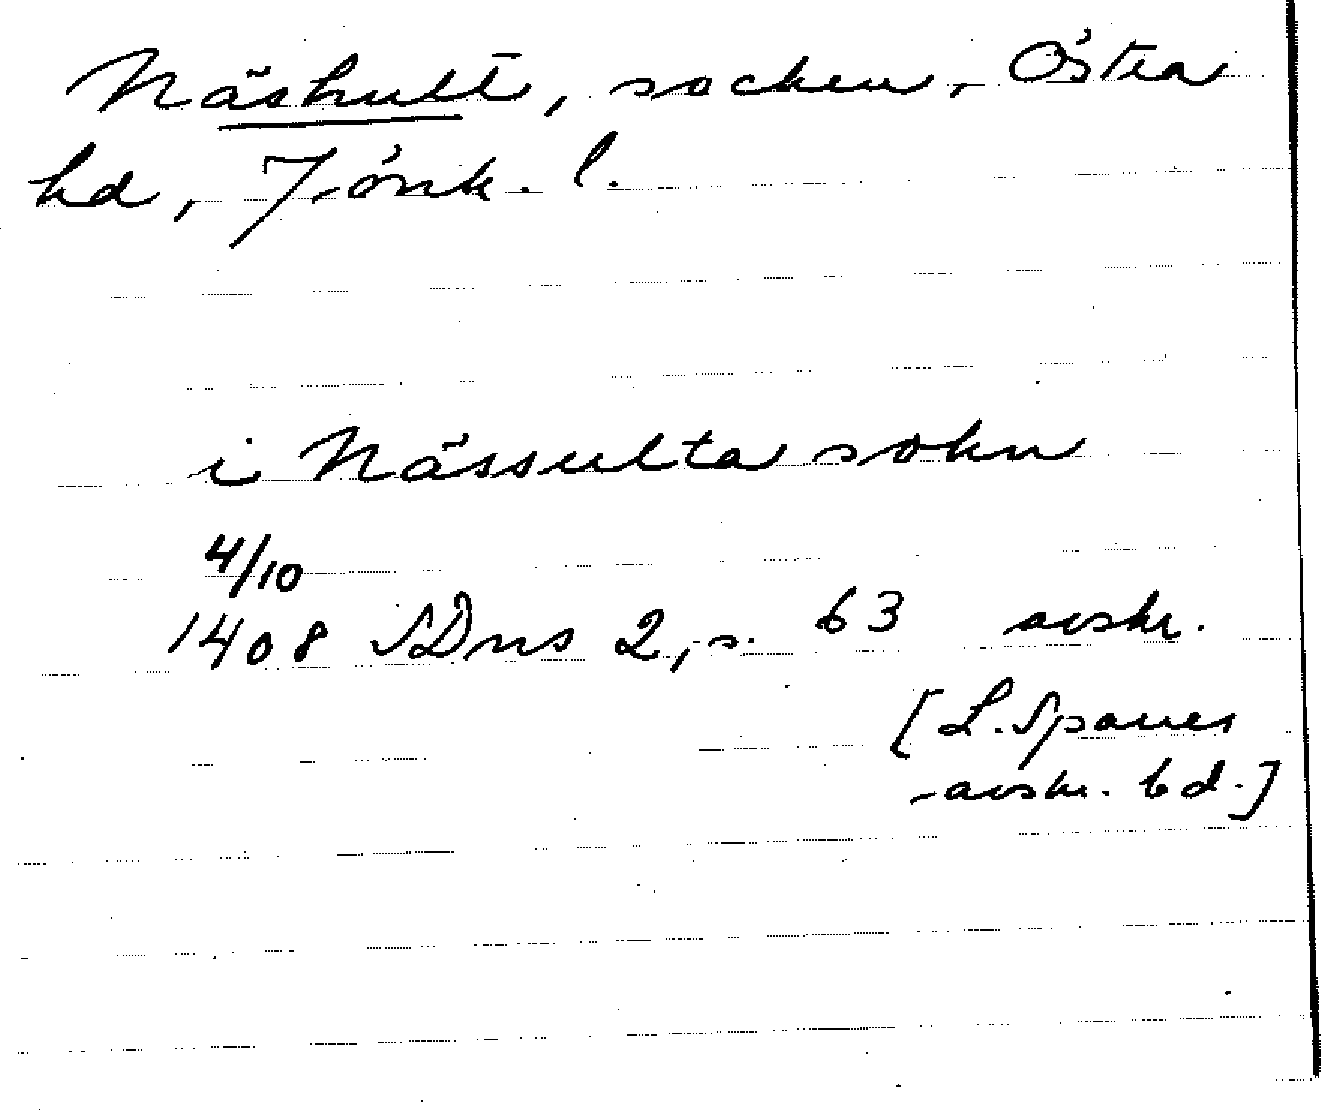 Näshult, socken, Östra
hd, Jönk. l.
i Nässulta sokn
4/10
1408 SDns 2, s. 63 avskr.
[L. Sparres
avskr. bd.]